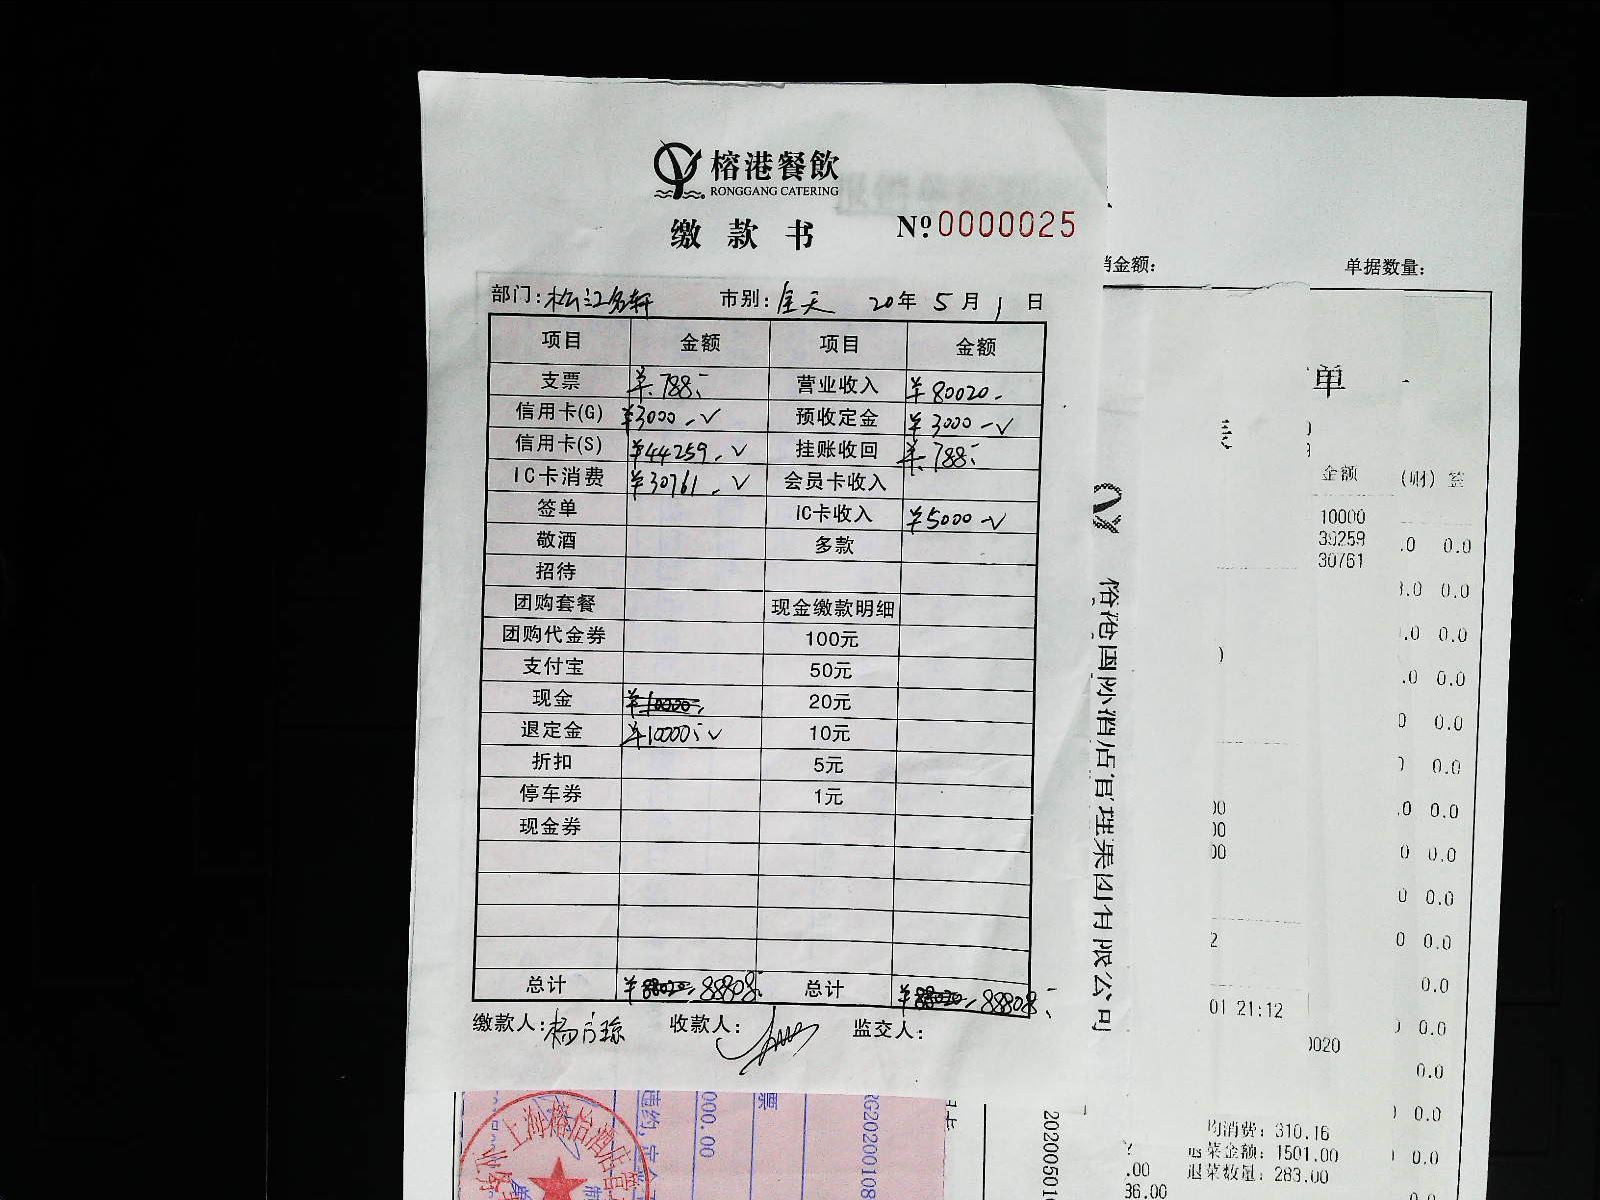 榕港餐飲
RONGGANG CATERING
缴款书 Nº 0000025
部门:松江名轩 市别:全天 20年5月1日
项目 金额 项目 金额
支票 ¥788.- 营业收入 ¥80020.-
信用卡(G) ¥3000.-✓ 预收定金 ¥3000-✓
信用卡(S) ¥44259.✓ 挂账收回 ¥788.-
IC卡消费 ¥30761.✓ 会员卡收入
签单 IC卡收入 ¥5000-✓
敬酒 多款
招待
团购套餐 现金缴款明细
团购代金券 100元
支付宝 50元
现金 ¥10000. 20元
退定金 ¥10000.-✓ 10元
折扣 5元
停车券 1元
现金券
总计 ¥88020. 88808.- 总计 ¥88020. 88808.-
缴款人: 收款人: 监交人:
单据数量:
单
金额 (财) 签
10000
39259
30761
.0 0.0
0.0
.0 0.0
.0 0.0
0 0.0
0.0
.0 0.0
0 0.0
0 0.0
0 0.0
0.0
0.0
0.0
0.0
0.0
00
00
00
2
01 21:12
0020
均消费: 310.16
退菜金额: 1501.00
退菜数量: 283.00
.00
36.00
000.00
票
RG20200108
20200501